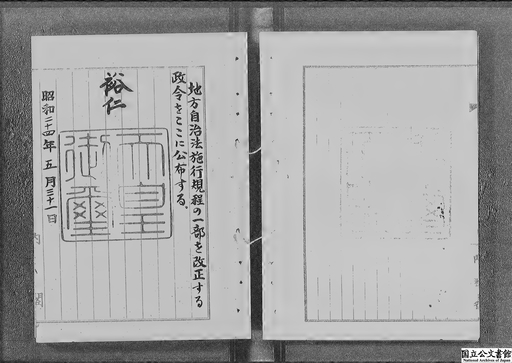 地方自治法施行規程の一部を改正する
政令をここに公布する。
裕仁
天皇
御璽
昭和二十四年五月三十一日
内閣
国立公文書館
National Archives of Japan